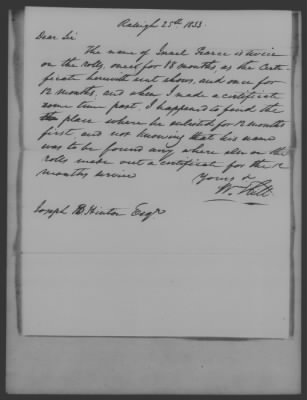 Raleigh 25th 1833.
Dear Sir
The name of Israel Pearce is twice
on the rolls, once for 18 months, as the Certi-
ficate herewith sent shows, and once for
12 months, and when I made a certificate
some time past, I happened to find the
place where he enlisted for 12 months
first, and not knowing that his name
was to be found any where else on the
rolls made out a certificate for the 12
months service
Yours &
Wm Hill
Joseph B Hinton Esqr